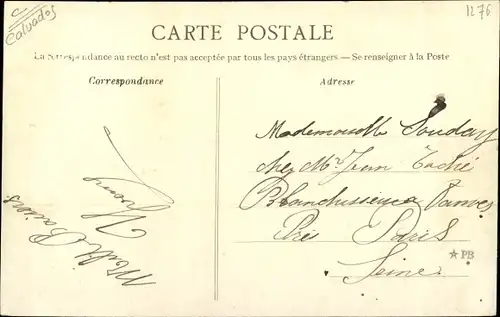 C
Calvados
1276
CARTE POSTALE
La correspondance au recto n'est pas acceptée par tous les pays étrangers. — Se renseigner à la Poste
Correspondance
Adresse
Mille Baisers
Mademoiselle Souday
chez Mr Jean Taché
Blanchisseuse Vanves
Près Paris
Seine
★ PB